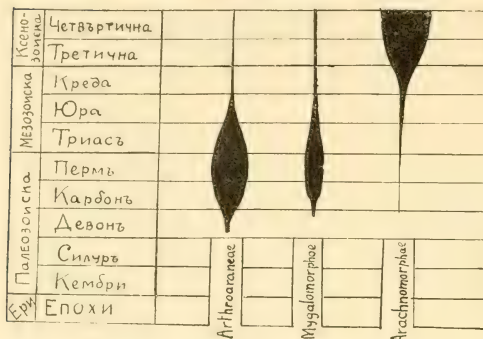 Ксенозоиска
Четвъртична
Третична
Мезозоиска
Креда
Юра
Триасъ
Палеозоиска
Пермъ
Карбонъ
Девонъ
Силуръ
Кембри
Ери
Епохи
Arthroaraneae
Mygalomorphae
Arachnomorphae